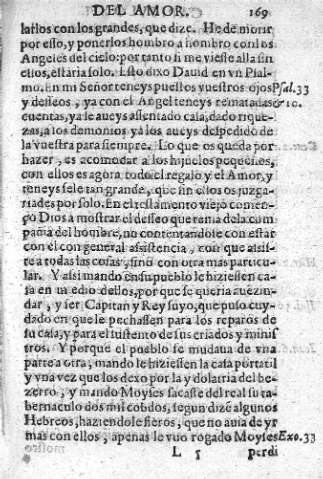 DEL AMOR. 169
latlos con los grandes, que dize. He de morir
por esso, y ponerlos hombro a hombro con los
Angeles del cielo: por tanto si me viesse alla sin
ellos, estaria solo. Esto dixo Dauid en vn Psal-
mo. En mi Señor teneys puestos vuestros ojos Psal. 33
y desseos, ya con el Angel teneys rematadas
cuentas, ya le aueys assentado casa, dado rique-
zas, a los demonios ya los aueys despedido de
la vuestra para siempre. Lo que os queda por
hazer, es acomodar a los hijuelos pequeños,
con ellos es agora todo el regalo y el Amor, y
teneys sele tan grande, que sin ellos os juzga-
riades por solo. En el testamento viejo comen-
ço Dios a mostrar el desseo que tenia de la com
pañia del hombre, no contentandose con estar
con el con general assistencia, con que assis-
te a todas las cosas, sino con otra mas particu-
lar. Y assi mando en su pueblo le hiziessen ca-
sa en medio dellos, por que se queria auezin-
dar, y ser Capitan y Rey suyo, que puso cuy-
dado en que le pechassen para los reparos de
su casa, y para el sustento de sus criados y minis
tros. Y porque el pueblo se mudaua de vna
parte a otra, mando le hiziessen la casa portatil
y vna vez que los dexo por la ydolatria del be-
zerro, y mando Moyses sacasse del real su ta-
bernaculo dos mil cobdos, segun dize algunos
Hebreos, haziendole fieros, que no auia de yr
mas con ellos, apenas le vuo rogado Moyses Exo. 33
L 5 perdi